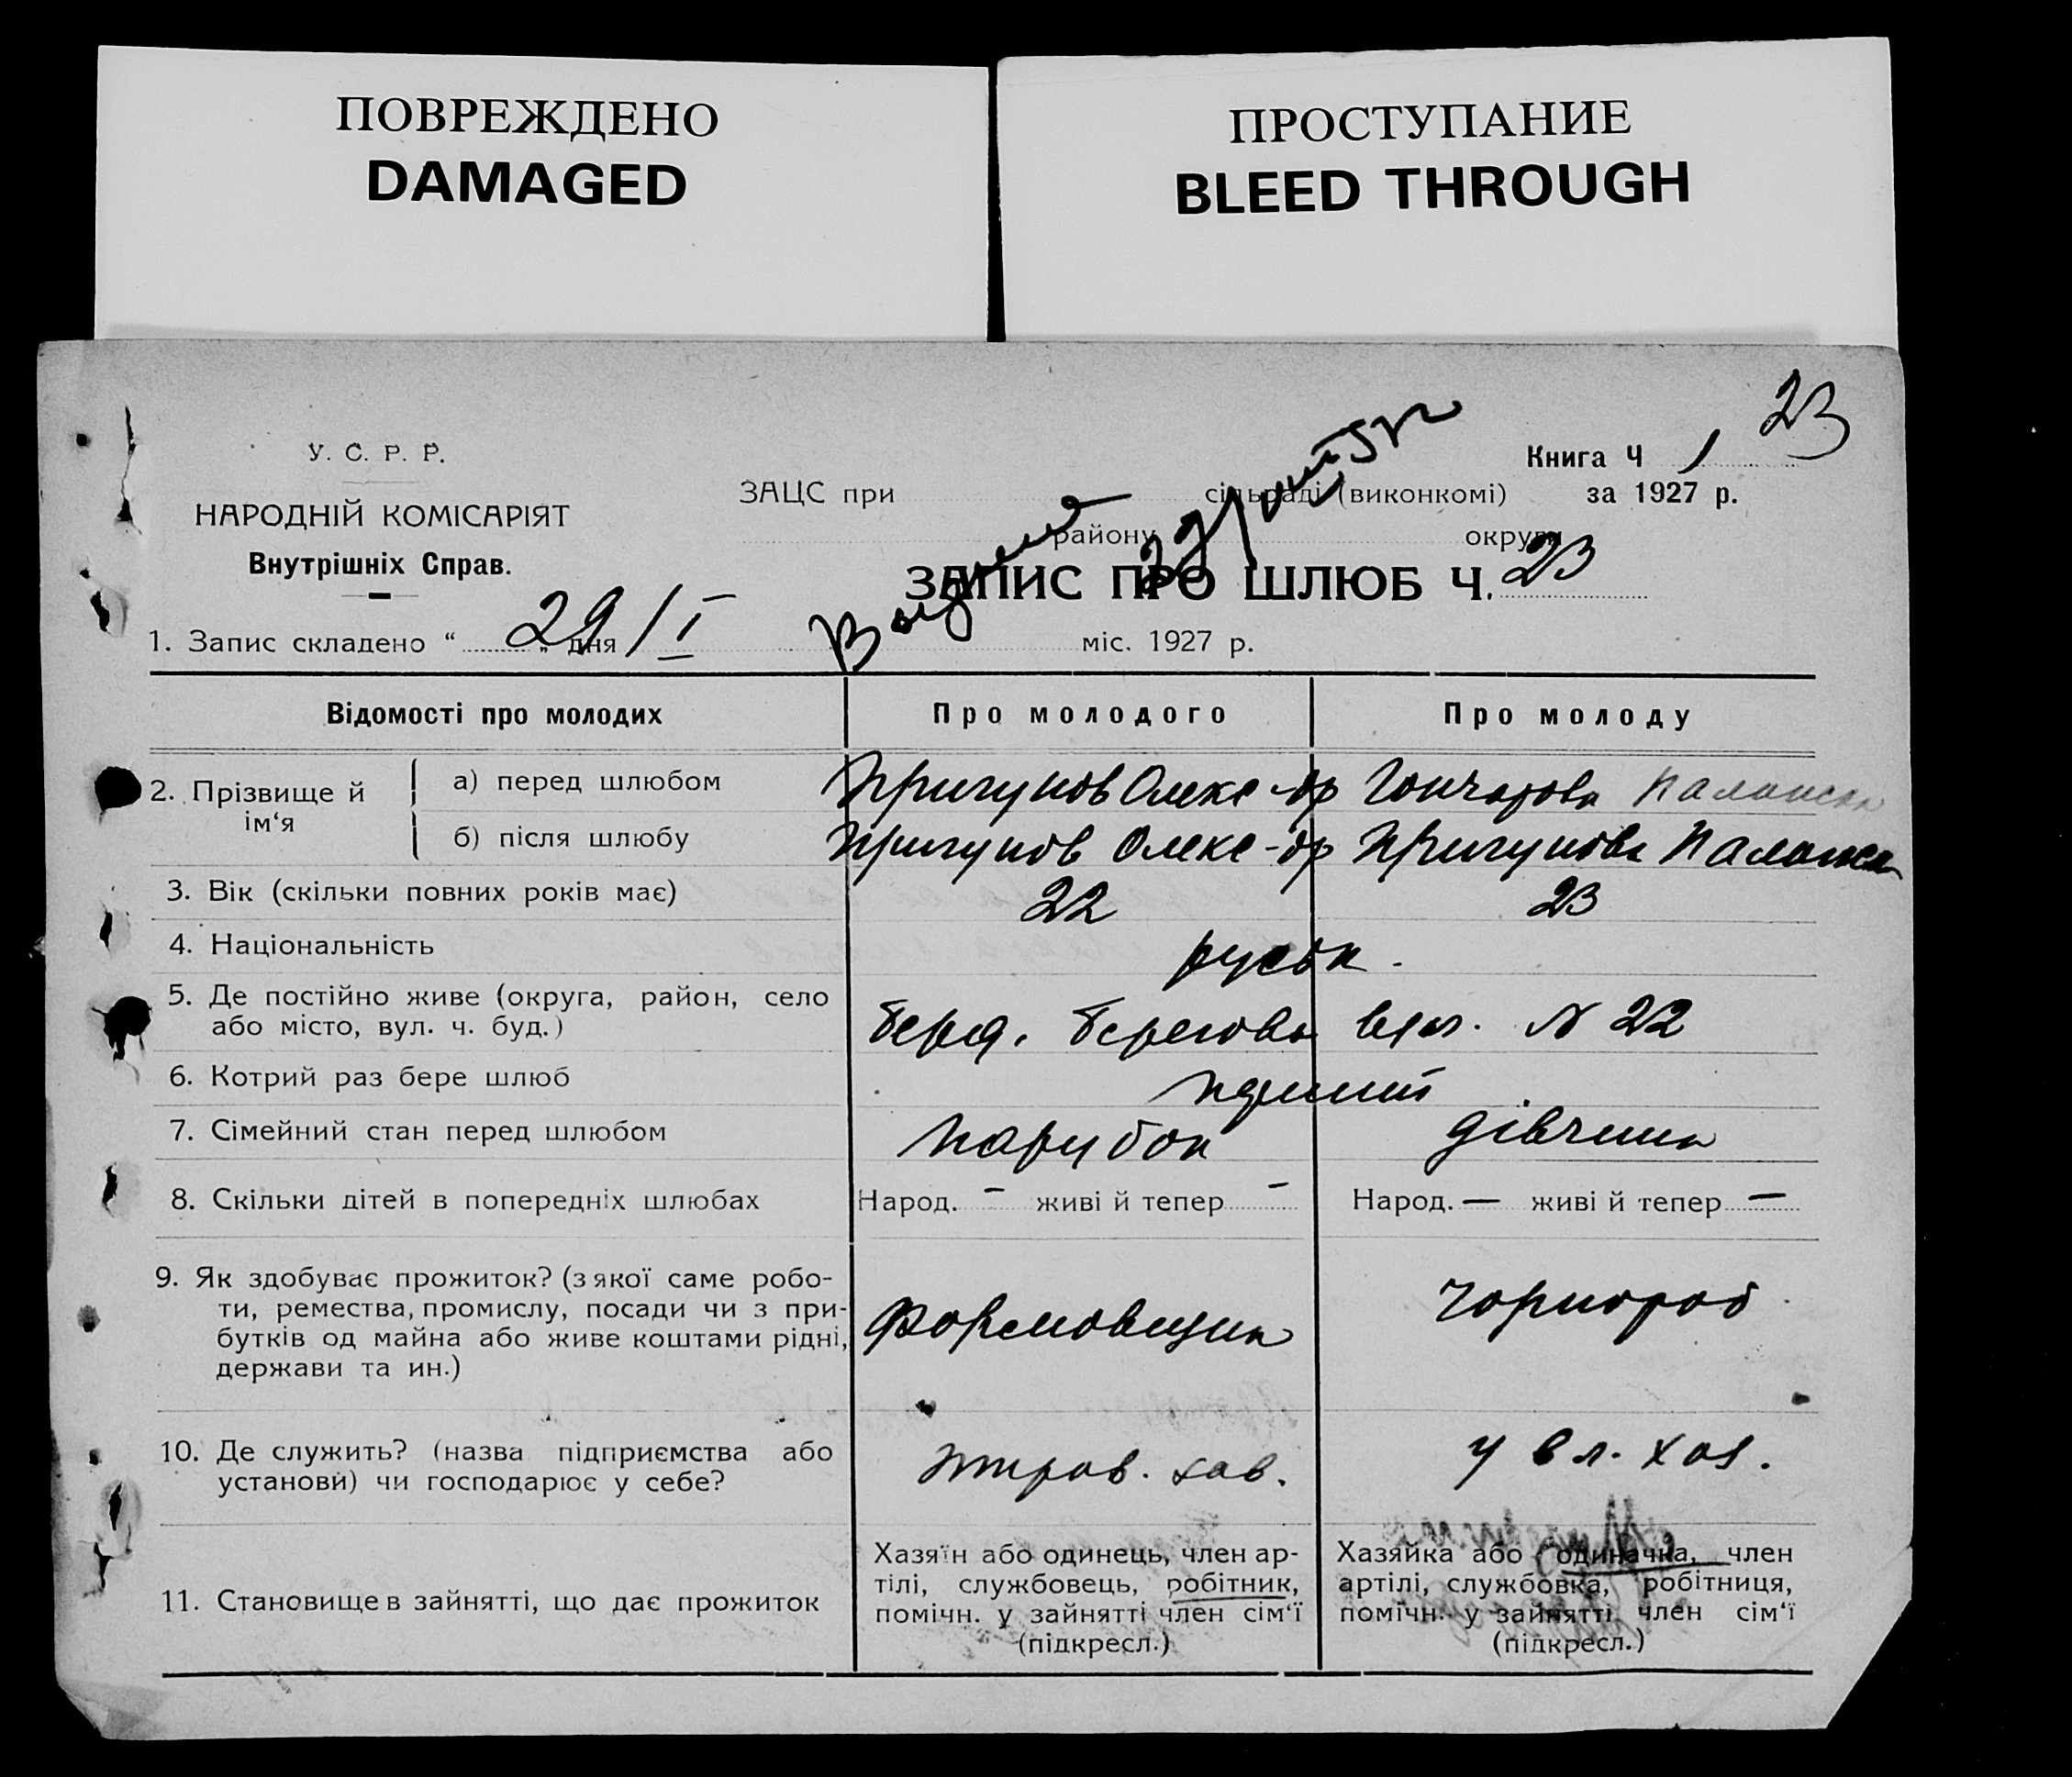 ПОВРЕЖДЕНО
DAMAGED
ПРОСТУПАНИЕ
BLEED THROUGH
23
У. С. Р. Р.
НАРОДНІЙ КОМІСАРІЯТ
Внутрішніх Справ.
Книга Ч 1
ЗАЦС при сільраді (виконкомі) за 1927 р.
району округи
ЗАПИС ПРО ШЛЮБ Ч. 23
1. Запис складено “ 29 „ дня / I міс. 1927 р.
Відомості про молодих Про молодого Про молоду
2. Прізвище й ім‘я
а) перед шлюбом Пригунов Олекс-др Гончарова
б) після шлюбу Пригунов Олекс-др Пригунова
3. Вік (скільки повних років має) 22 23
4. Національність руськ.
5. Де постійно живе (округа, район, село
або місто, вул. ч. буд.) Берд. Берегова вул. N 22
6. Котрий раз бере шлюб
7. Сімейний стан перед шлюбом парубок дівчина
8. Скільки дітей в попередніх шлюбах Народ. – живі й тепер – Народ. — живі й тепер —
9. Як здобуває прожиток? (з якої саме робо-
ти, ремества, промислу, посади чи з при-
бутків од майна або живе коштами рідні,
держави та ин.)
формовщик чорнороб
10. Де служить? (назва підприємства або
установи) чи господарює у себе?
у вл. хоз.
11. Становище в зайнятті, що дає прожиток
Хазяїн або одинець, член ар-
тілі, службовець, робітник,
помічн. у зайнятті член сім‘ї
(підкресл.)
Хазяйка або одиначка, член
артілі, службовка, робітниця,
помічн. у зайнятті член сім‘ї
(підкресл.)